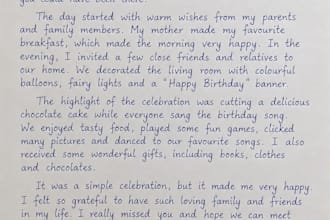 you could have been there.
The day started with warm wishes from my parents
and family members. My mother made my favourite
breakfast, which made the morning very happy. In the
evening, I invited a few close friends and relatives to
our home. We decorated the living room with colourful
balloons, fairy lights and a "Happy Birthday" banner.
The highlight of the celebration was cutting a delicious
chocolate cake while everyone sang the birthday song.
We enjoyed tasty food, played some fun games, clicked
many pictures and danced to our favourite songs. I also
received some wonderful gifts, including books, clothes
and chocolates.
It was a simple celebration, but it made me very happy.
I felt so grateful to have such loving family and friends
in my life. I really missed you and hope we can meet